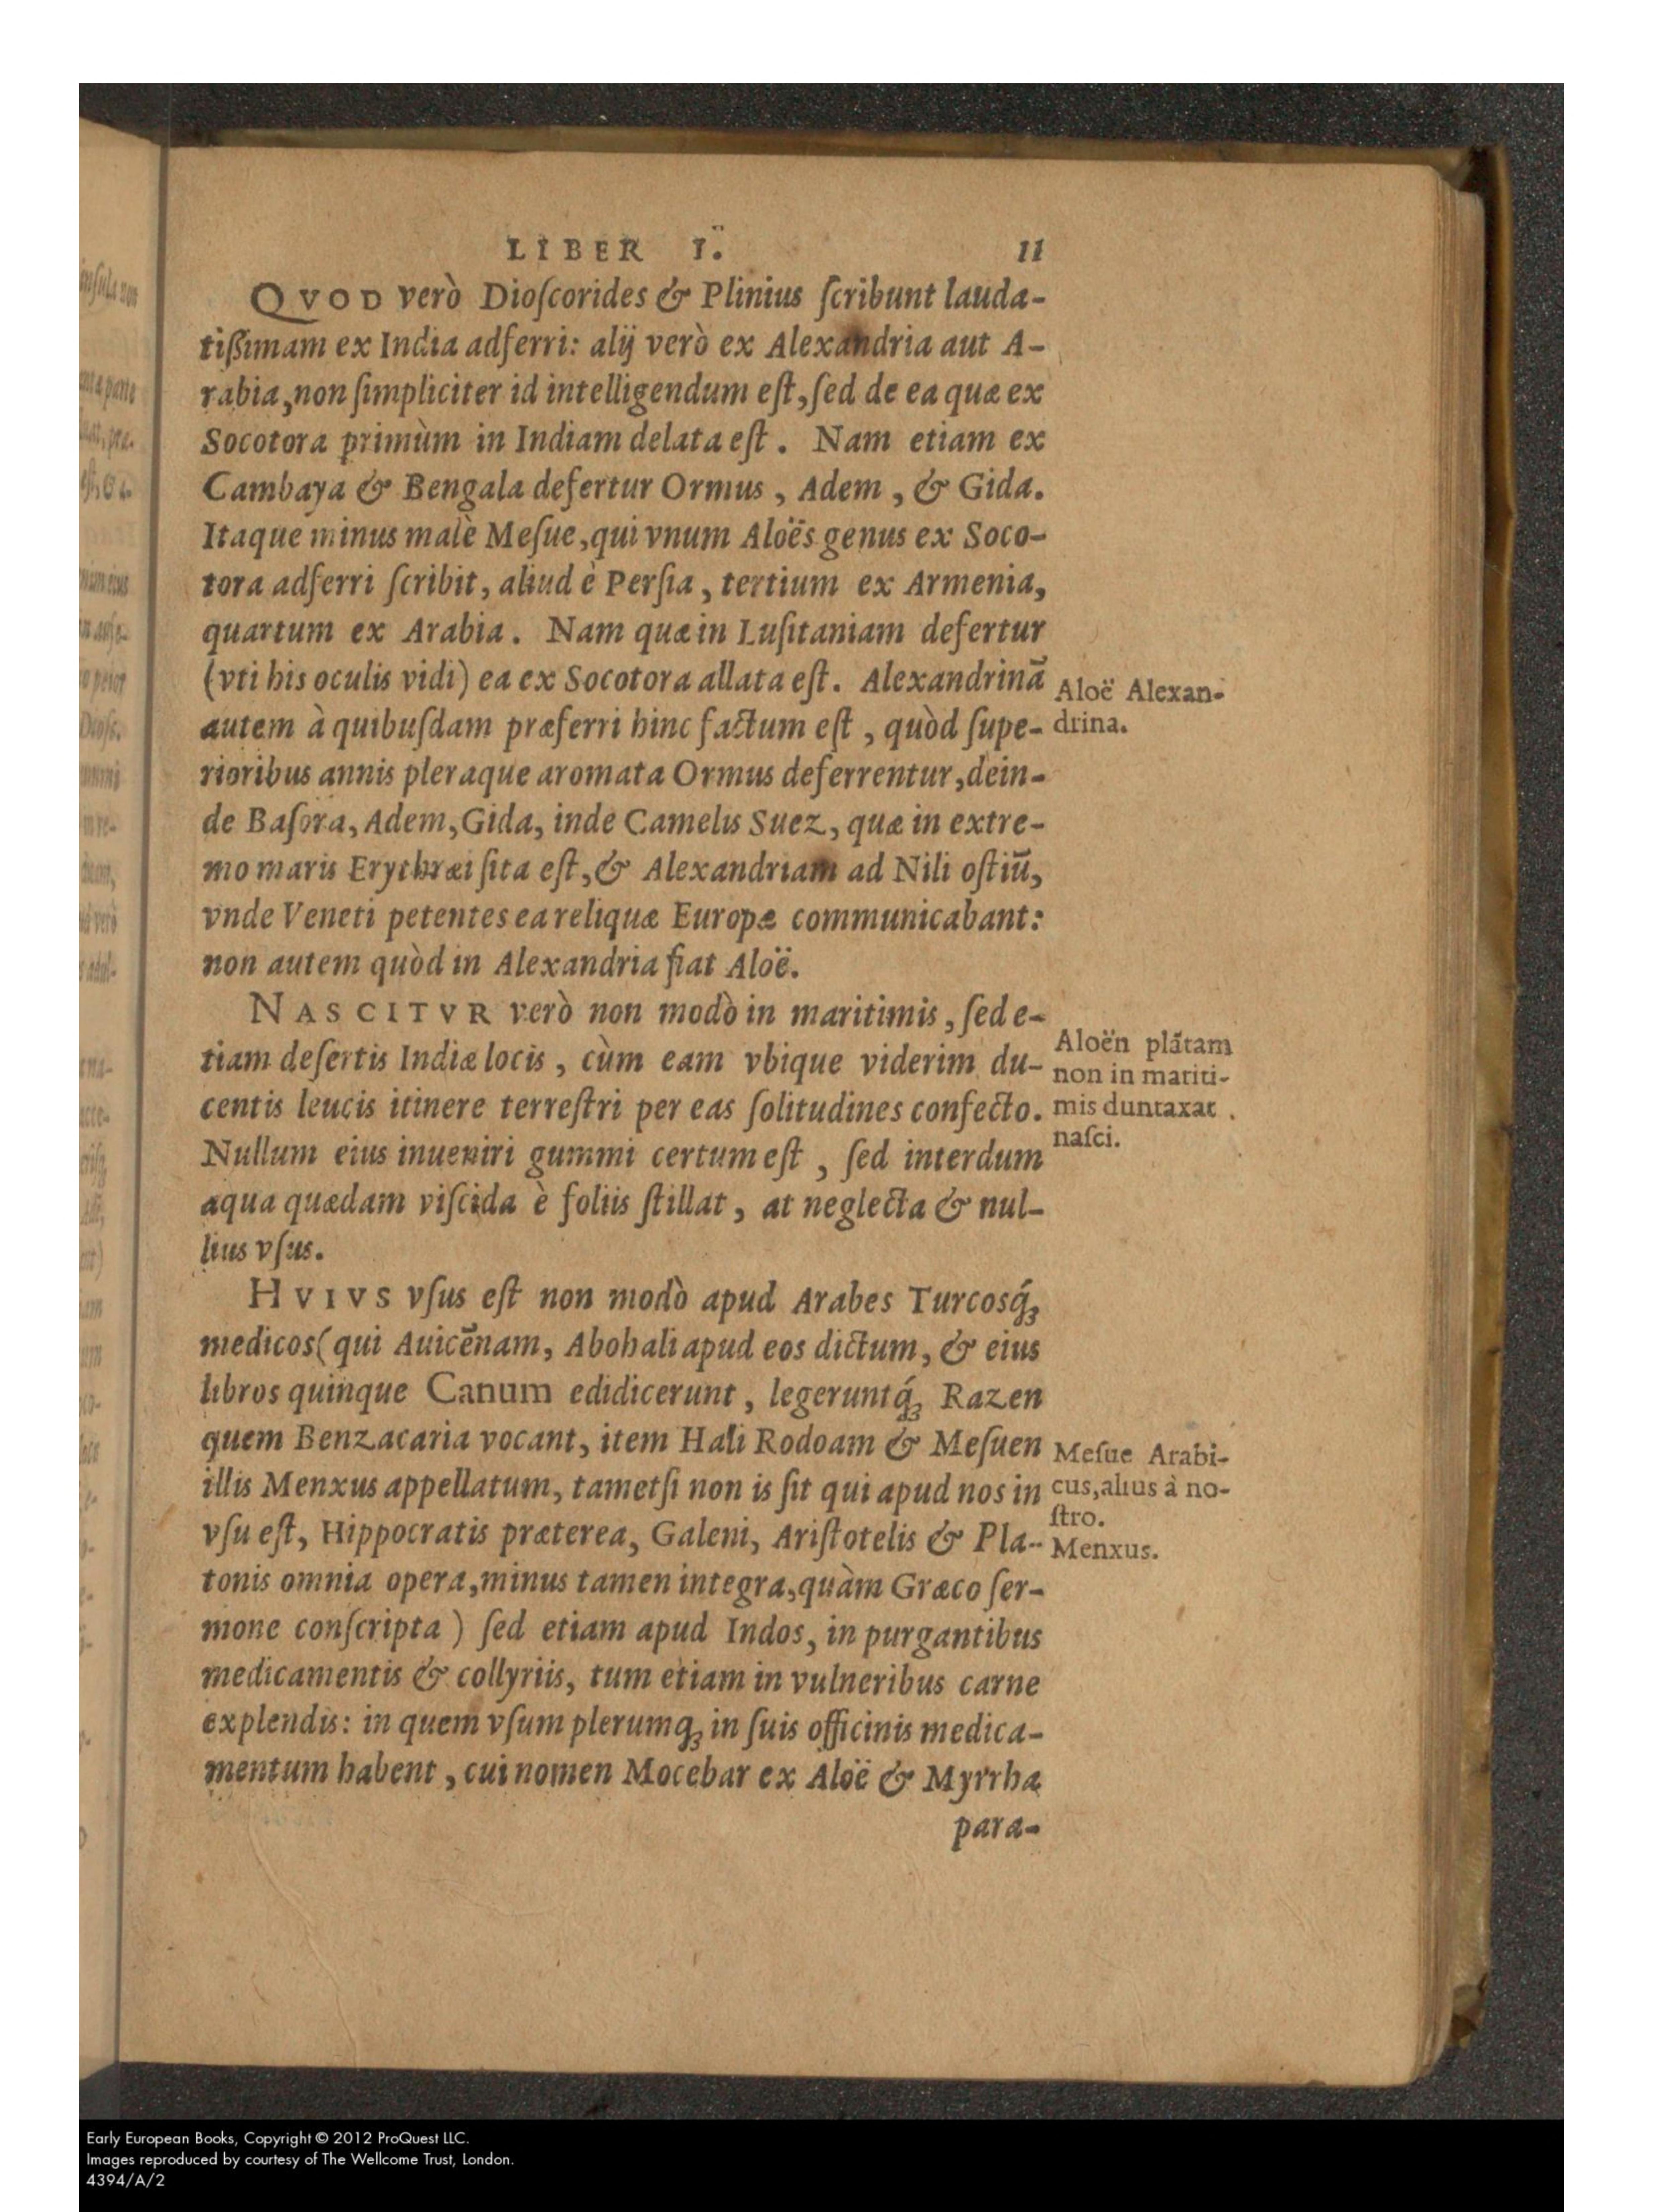 LIBER I.
11
QVOD verò Dioſcorides & Plinius ſcribunt lauda-
tißimam ex India adferri: alij verò ex Alexandria aut A-
rabia, non ſimpliciter id intelligendum eſt, ſed de ea quæ ex
Socotora primùm in Indiam delata eſt. Nam etiam ex
Cambaya & Bengala defertur Ormus, Adem, & Gida.
Itaque minus malè Meſue, qui vnum Aloës genus ex Soco-
tora adferri ſcribit, aliud è Perſia, tertium ex Armenia,
quartum ex Arabia. Nam quæ in Luſitaniam defertur
(vti his oculis vidi) ea ex Socotora allata eſt. Alexandrinā
autem à quibuſdam præferri hinc factum eſt, quòd ſupe-
rioribus annis pleraque aromata Ormus deferrentur, dein-
de Baſora, Adem, Gida, inde Camelis Suez, quæ in extre-
mo maris Erythræi ſita eſt, & Alexandriam ad Nili oſtiū,
vnde Veneti petentes ea reliquæ Europæ communicabant:
non autem quòd in Alexandria fiat Aloë.
Aloë Alexan-
drina.
NASCITVR verò non modò in maritimis, ſed e-
tiam deſertis Indiæ locis, cùm eam vbique viderim du-
centis leucis itinere terreſtri per eas ſolitudines confecto.
Nullum eius inueniri gummi certum eſt, ſed interdum
aqua quædam viſcida è foliis ſtillat, at neglecta & nul-
lius vſus.
Aloën plātam
non in mariti-
mis duntaxat
naſci.
HVIVS vſus eſt non modò apud Arabes Turcosq́;
medicos (qui Auicēnam, Abohali apud eos dictum, & eius
libros quinque Canum edidicerunt, legeruntq́; Razen
quem Benzacaria vocant, item Hali Rodoam & Meſuen
illis Menxus appellatum, tametſi non is ſit qui apud nos in
vſu eſt, Hippocratis præterea, Galeni, Ariſtotelis & Pla-
tonis omnia opera, minus tamen integra, quàm Græco ſer-
mone conſcripta) ſed etiam apud Indos, in purgantibus
medicamentis & collyriis, tum etiam in vulneribus carne
explendis: in quem vſum plerumq; in ſuis officinis medica-
mentum habent, cui nomen Mocebar ex Aloë & Myrrha
para-
Meſue Arabi-
cus, alius à no-
ſtro.
Menxus.
Early European Books, Copyright © 2012 ProQuest LLC.
Images reproduced by courtesy of The Wellcome Trust, London.
4394/A/2